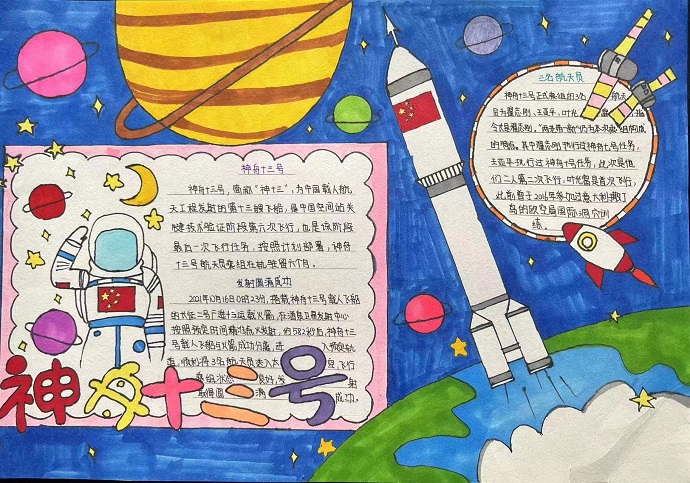 神舟十三号
神舟十三号，简称“神十三”，为中国载人航
天工程发射的第十三艘飞船，是中国空间站关
键技术验证阶段第六次飞行，也是该阶段
最后一次飞行任务，按照计划部署，神舟
十三号航天员乘组在轨驻留六个月。
发射圆满成功
2021年10月16日0时23分，搭载神舟十三号载人飞船
的长征二号F遥十三运载火箭，在酒泉卫星发射中心
按照预定时间精准点火发射，约582秒后，神舟十三
号载人飞船与火箭成功分离，进 入预定轨
道，顺利将3名航天员送入太 空，飞行
乘组状态 良好，发 射
取得圆 满 成功。
神舟十三号
三名航天员
神舟十三号正式乘组的3名 航天员
为翟志刚、王亚平、叶光
令员是翟志刚。
的明确。其中翟志刚执行过神舟七号任务，
王亚平执行过神舟十号任务，此次是他
们二人第二次飞行，叶光富是首次飞行，
此前曾于2016年参加过意大利撒丁
岛的欧空局国际洞穴训
练。